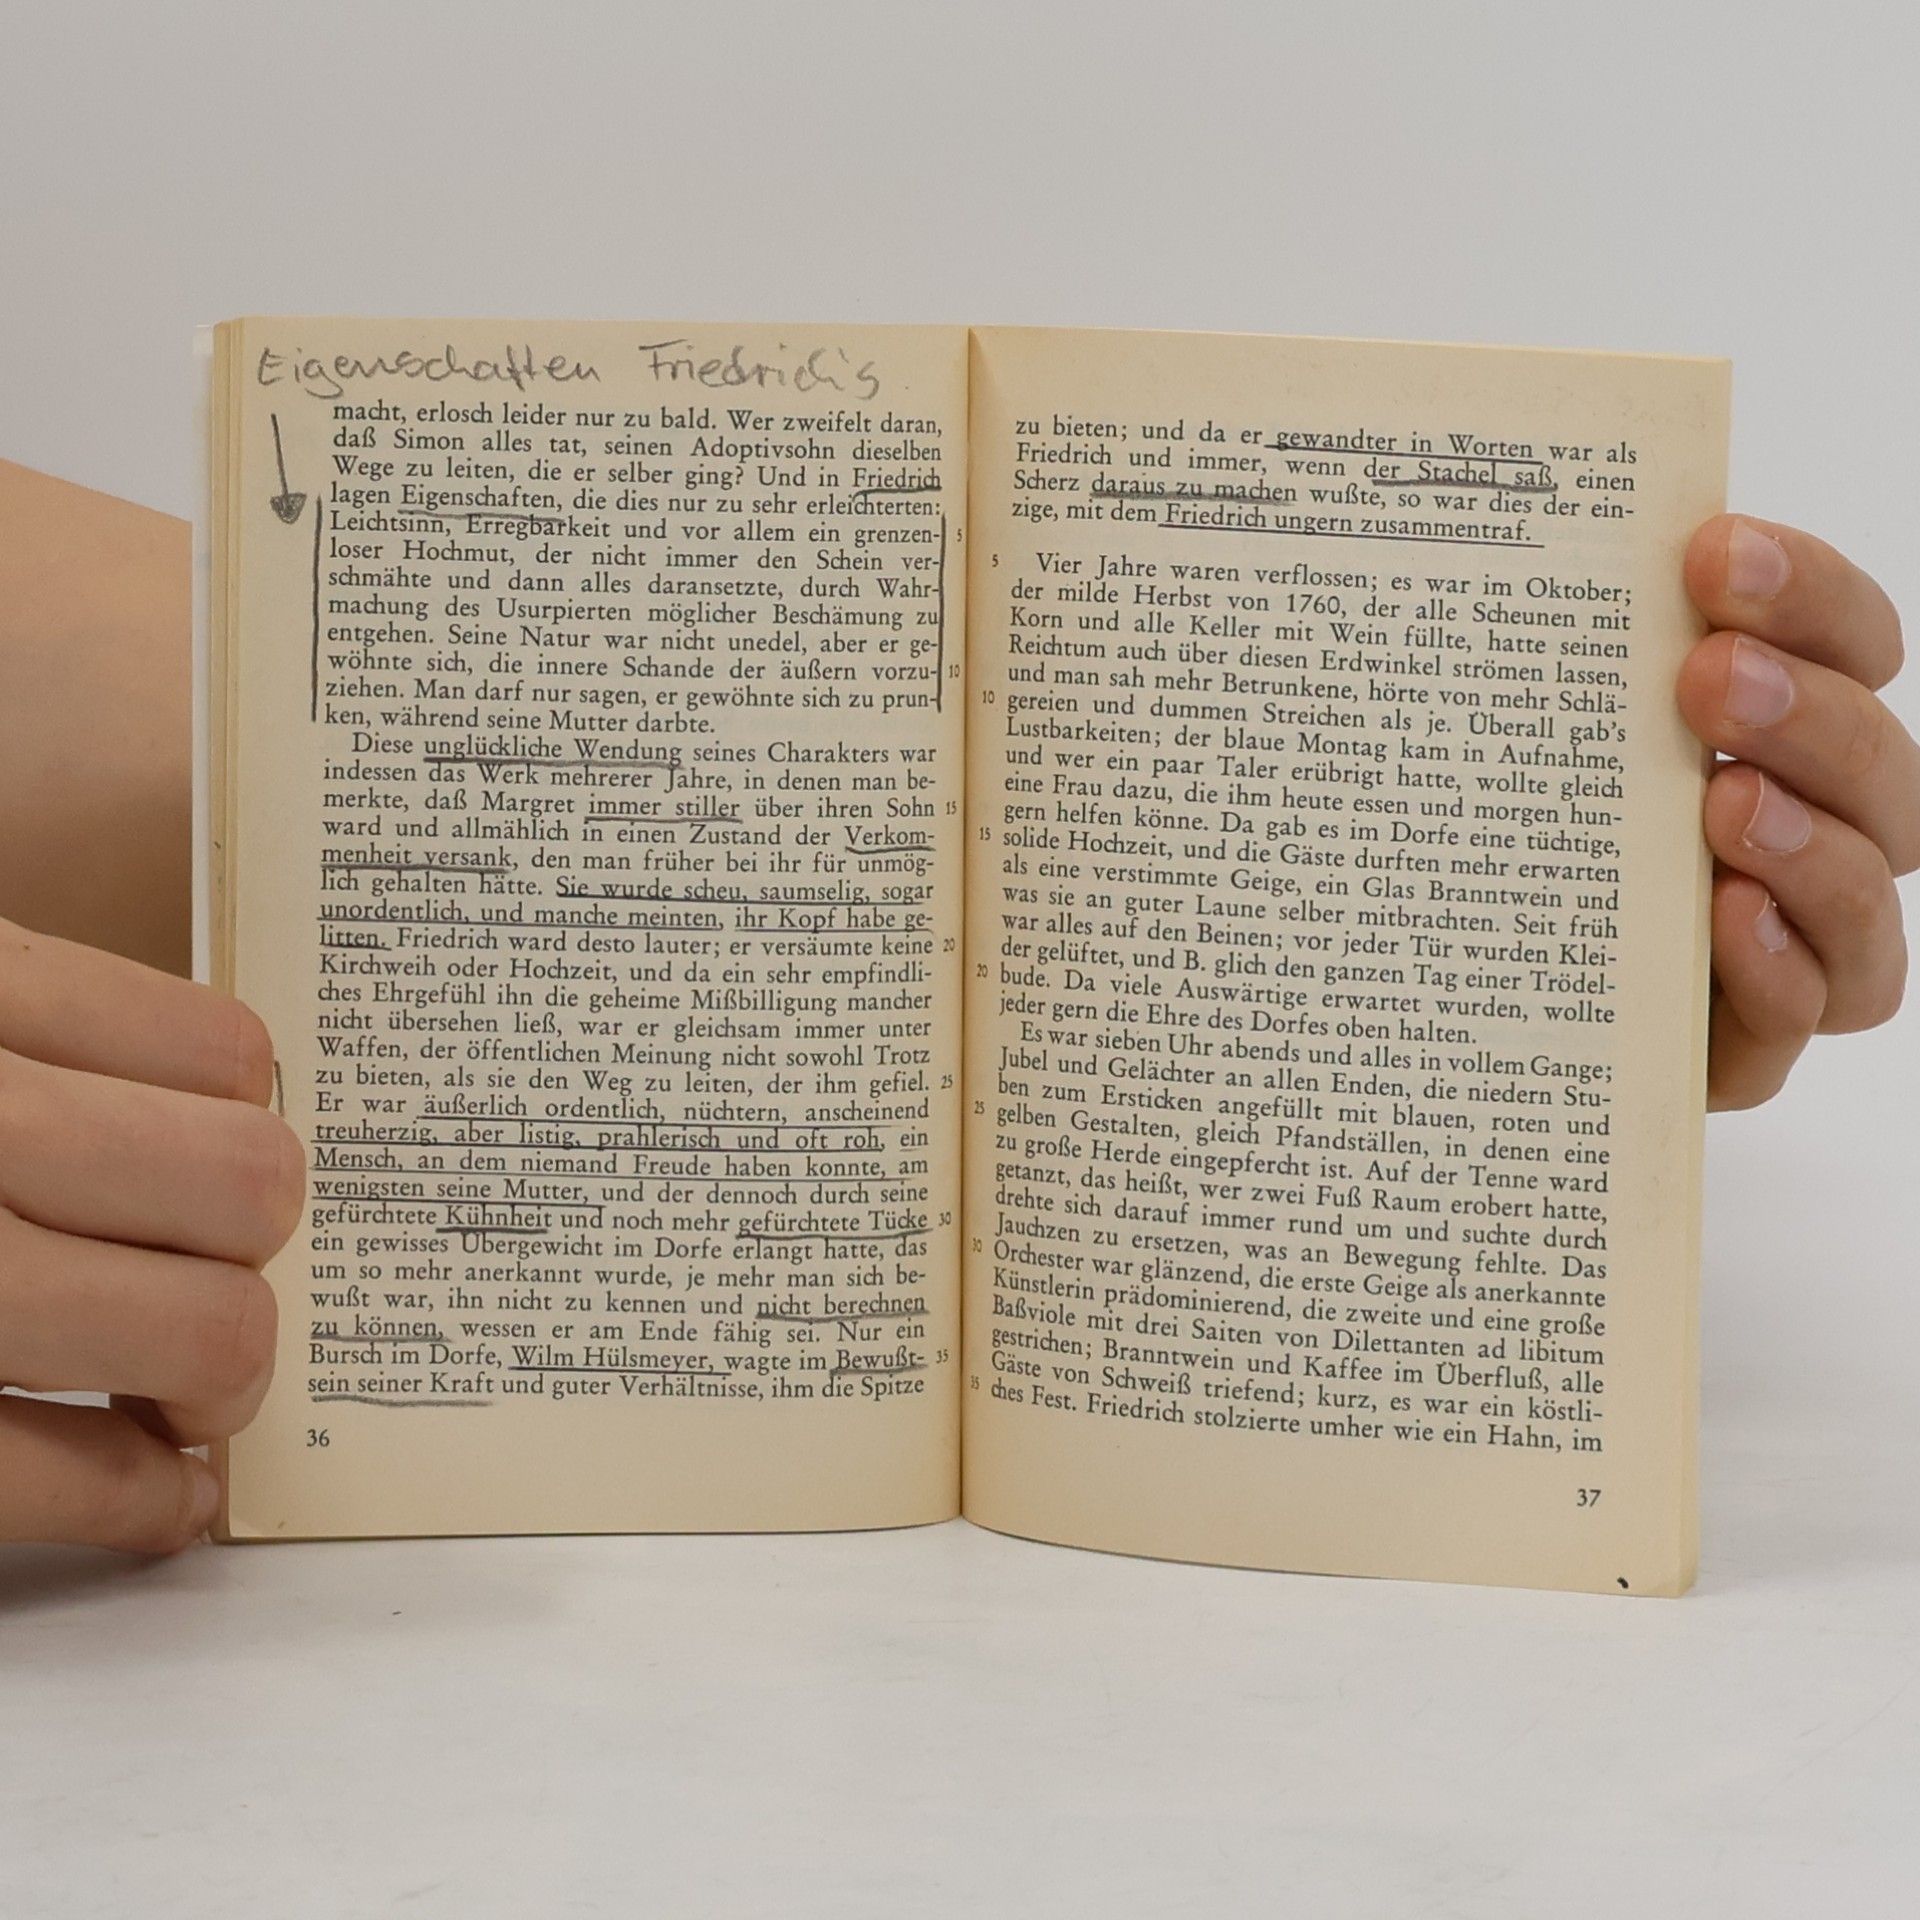 Eigenschaften Friedrichs
macht, erlosch leider nur zu bald. Wer zweifelt daran,
daß Simon alles tat, seinen Adoptivsohn dieselben
Wege zu leiten, die er selber ging? Und in Friedrich
lagen Eigenschaften, die dies nur zu sehr erleichterten:
Leichtsinn, Erregbarkeit und vor allem ein grenzen- 5
loser Hochmut, der nicht immer den Schein ver-
schmähte und dann alles daransetzte, durch Wahr-
machung des Usurpierten möglicher Beschämung zu
entgehen. Seine Natur war nicht unedel, aber er ge-
wöhnte sich, die innere Schande der äußern vorzu- 10
ziehen. Man darf nur sagen, er gewöhnte sich zu prun-
ken, während seine Mutter darbte.
Diese unglückliche Wendung seines Charakters war
indessen das Werk mehrerer Jahre, in denen man be-
merkte, daß Margret immer stiller über ihren Sohn 15
ward und allmählich in einen Zustand der Verkom-
menheit versank, den man früher bei ihr für unmög-
lich gehalten hätte. Sie wurde scheu, saumselig, sogar
unordentlich, und manche meinten, ihr Kopf habe ge-
litten. Friedrich ward desto lauter; er versäumte keine 20
Kirchweih oder Hochzeit, und da ein sehr empfindli-
ches Ehrgefühl ihn die geheime Mißbilligung mancher
nicht übersehen ließ, war er gleichsam immer unter
Waffen, der öffentlichen Meinung nicht sowohl Trotz
zu bieten, als sie den Weg zu leiten, der ihm gefiel. 25
Er war äußerlich ordentlich, nüchtern, anscheinend
treuherzig, aber listig, prahlerisch und oft roh, ein
Mensch, an dem niemand Freude haben konnte, am
wenigsten seine Mutter, und der dennoch durch seine
gefürchtete Kühnheit und noch mehr gefürchtete Tücke 30
ein gewisses Übergewicht im Dorfe erlangt hatte, das
um so mehr anerkannt wurde, je mehr man sich be-
wußt war, ihn nicht zu kennen und nicht berechnen
zu können, wessen er am Ende fähig sei. Nur ein
Bursch im Dorfe, Wilm Hülsmeyer, wagte im Bewußt- 35
sein seiner Kraft und guter Verhältnisse, ihm die Spitze
36
zu bieten; und da er gewandter in Worten war als
Friedrich und immer, wenn der Stachel saß, einen
Scherz daraus zu machen wußte, so war dies der ein-
zige, mit dem Friedrich ungern zusammentraf.
5 Vier Jahre waren verflossen; es war im Oktober;
der milde Herbst von 1760, der alle Scheunen mit
Korn und alle Keller mit Wein füllte, hatte seinen
Reichtum auch über diesen Erdwinkel strömen lassen,
und man sah mehr Betrunkene, hörte von mehr Schlä-
10 gereien und dummen Streichen als je. Überall gab's
Lustbarkeiten; der blaue Montag kam in Aufnahme,
und wer ein paar Taler erübrigt hatte, wollte gleich
eine Frau dazu, die ihm heute essen und morgen hun-
gern helfen könne. Da gab es im Dorfe eine tüchtige,
15 solide Hochzeit, und die Gäste durften mehr erwarten
als eine verstimmte Geige, ein Glas Branntwein und
was sie an guter Laune selber mitbrachten. Seit früh
war alles auf den Beinen; vor jeder Tür wurden Klei-
der gelüftet, und B. glich den ganzen Tag einer Trödel-
20 bude. Da viele Auswärtige erwartet wurden, wollte
jeder gern die Ehre des Dorfes oben halten.
Es war sieben Uhr abends und alles in vollem Gange;
Jubel und Gelächter an allen Enden, die niedern Stu-
ben zum Ersticken angefüllt mit blauen, roten und
25 gelben Gestalten, gleich Pfandställen, in denen eine
zu große Herde eingepfercht ist. Auf der Tenne ward
getanzt, das heißt, wer zwei Fuß Raum erobert hatte,
drehte sich darauf immer rund um und suchte durch
Jauchzen zu ersetzen, was an Bewegung fehlte. Das
30 Orchester war glänzend, die erste Geige als anerkannte
Künstlerin prädominierend, die zweite und eine große
Baßviole mit drei Saiten von Dilettanten ad libitum
gestrichen; Branntwein und Kaffee im Überfluß, alle
Gäste von Schweiß triefend; kurz, es war ein köstli-
35 ches Fest. Friedrich stolzierte umher wie ein Hahn, im
37